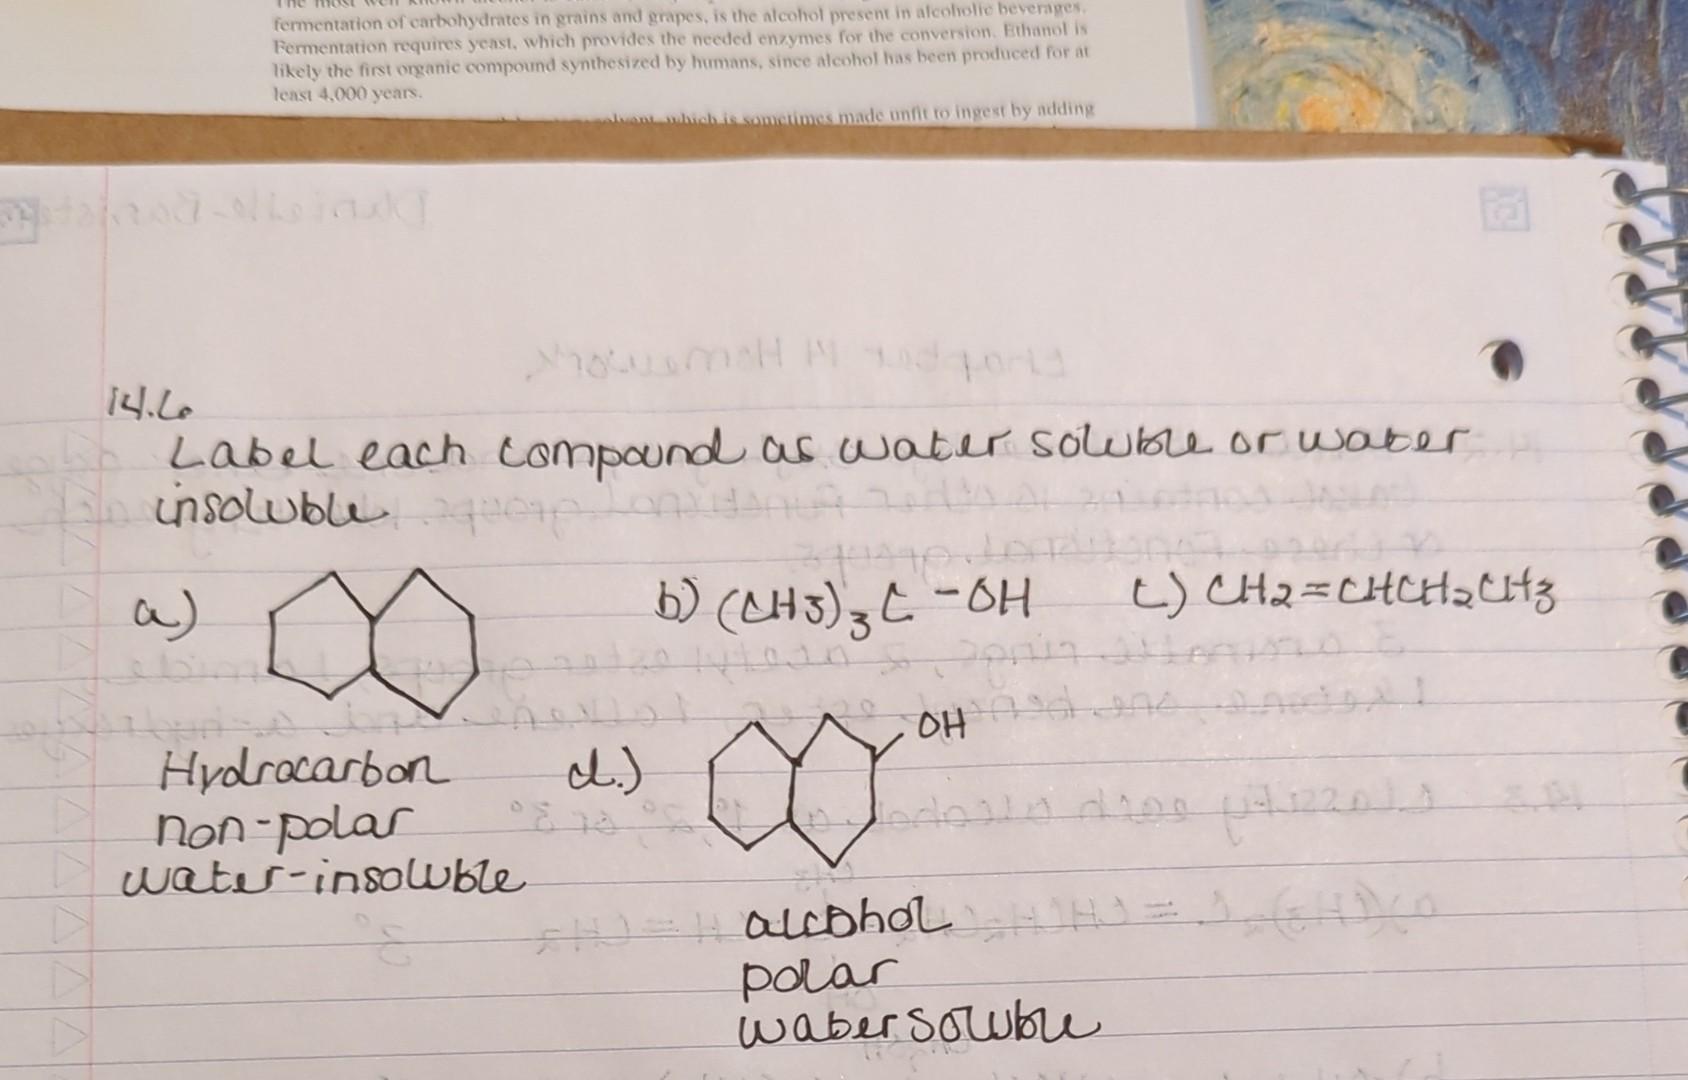 fermentation of carbohydrates in grains and grapes, is the alcohol present in alcoholic beverages.
Fermentation requires yeast, which provides the needed enzymes for the conversion. Ethanol is
likely the first organic compound synthesized by humans, since alcohol has been produced for at
least 4,000 years.
which is sometimes made unfit to ingest by adding
14.6
Label each compound as water soluble or water
insoluble.
a)
b) (CH3)3C-OH
c) CH2=CHCH2CH3
Hydrocarbon
non-polar
water-insoluble
d.)
OH
alcohol
polar
water soluble